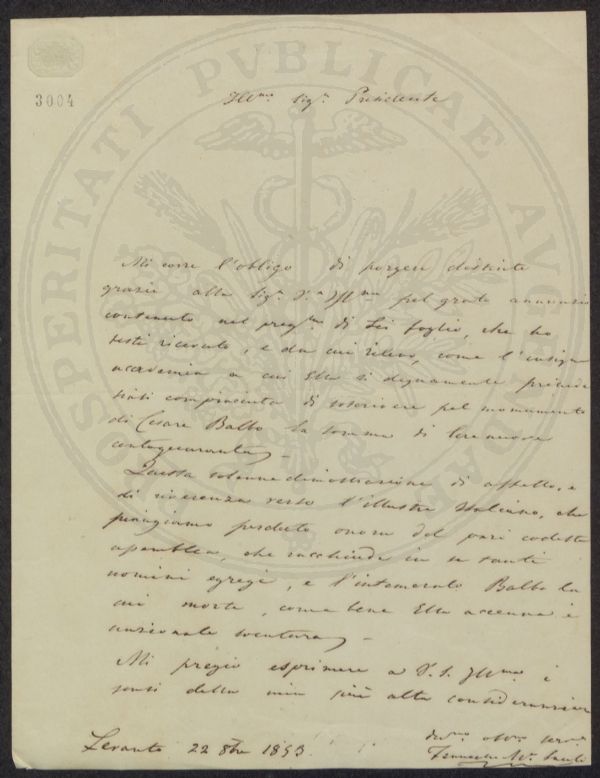 3004
Ill.mo Sig.r Presidente
Mi corre l'obligo di porgere distinte
grazie alla Sig.a V.a Ill.ma pel grato annunzio
contenuto nel preg.mo di Lei foglio, che ho
testé ricevuto, e da cui rilevo, come l'insigne
accademia a cui Ella sì degnamente presiede
siasi compiaciuta di soscrivere pel monumento
di Cesare Balbo la somma di lire nuove
centoquaranta
Questa solenne dimostrazione di affetto, e
di riverenza verso l'illustre Italiano, che
piangiamo perduto onora del pari codesta
assemblea, che racchiude in se tanti
uomini egregi, e l'intemerato Balbo la
cui morte, come bene Ella accenna è
nazionale sventura
Mi pregio esprimere a V. S. Ill.ma i
sensi della mia più alta considerazione
Levanto 22 8bre 1853
dev.mo obb.mo ser.e
PROSPERITATI PVBLICAE AVGENDAE